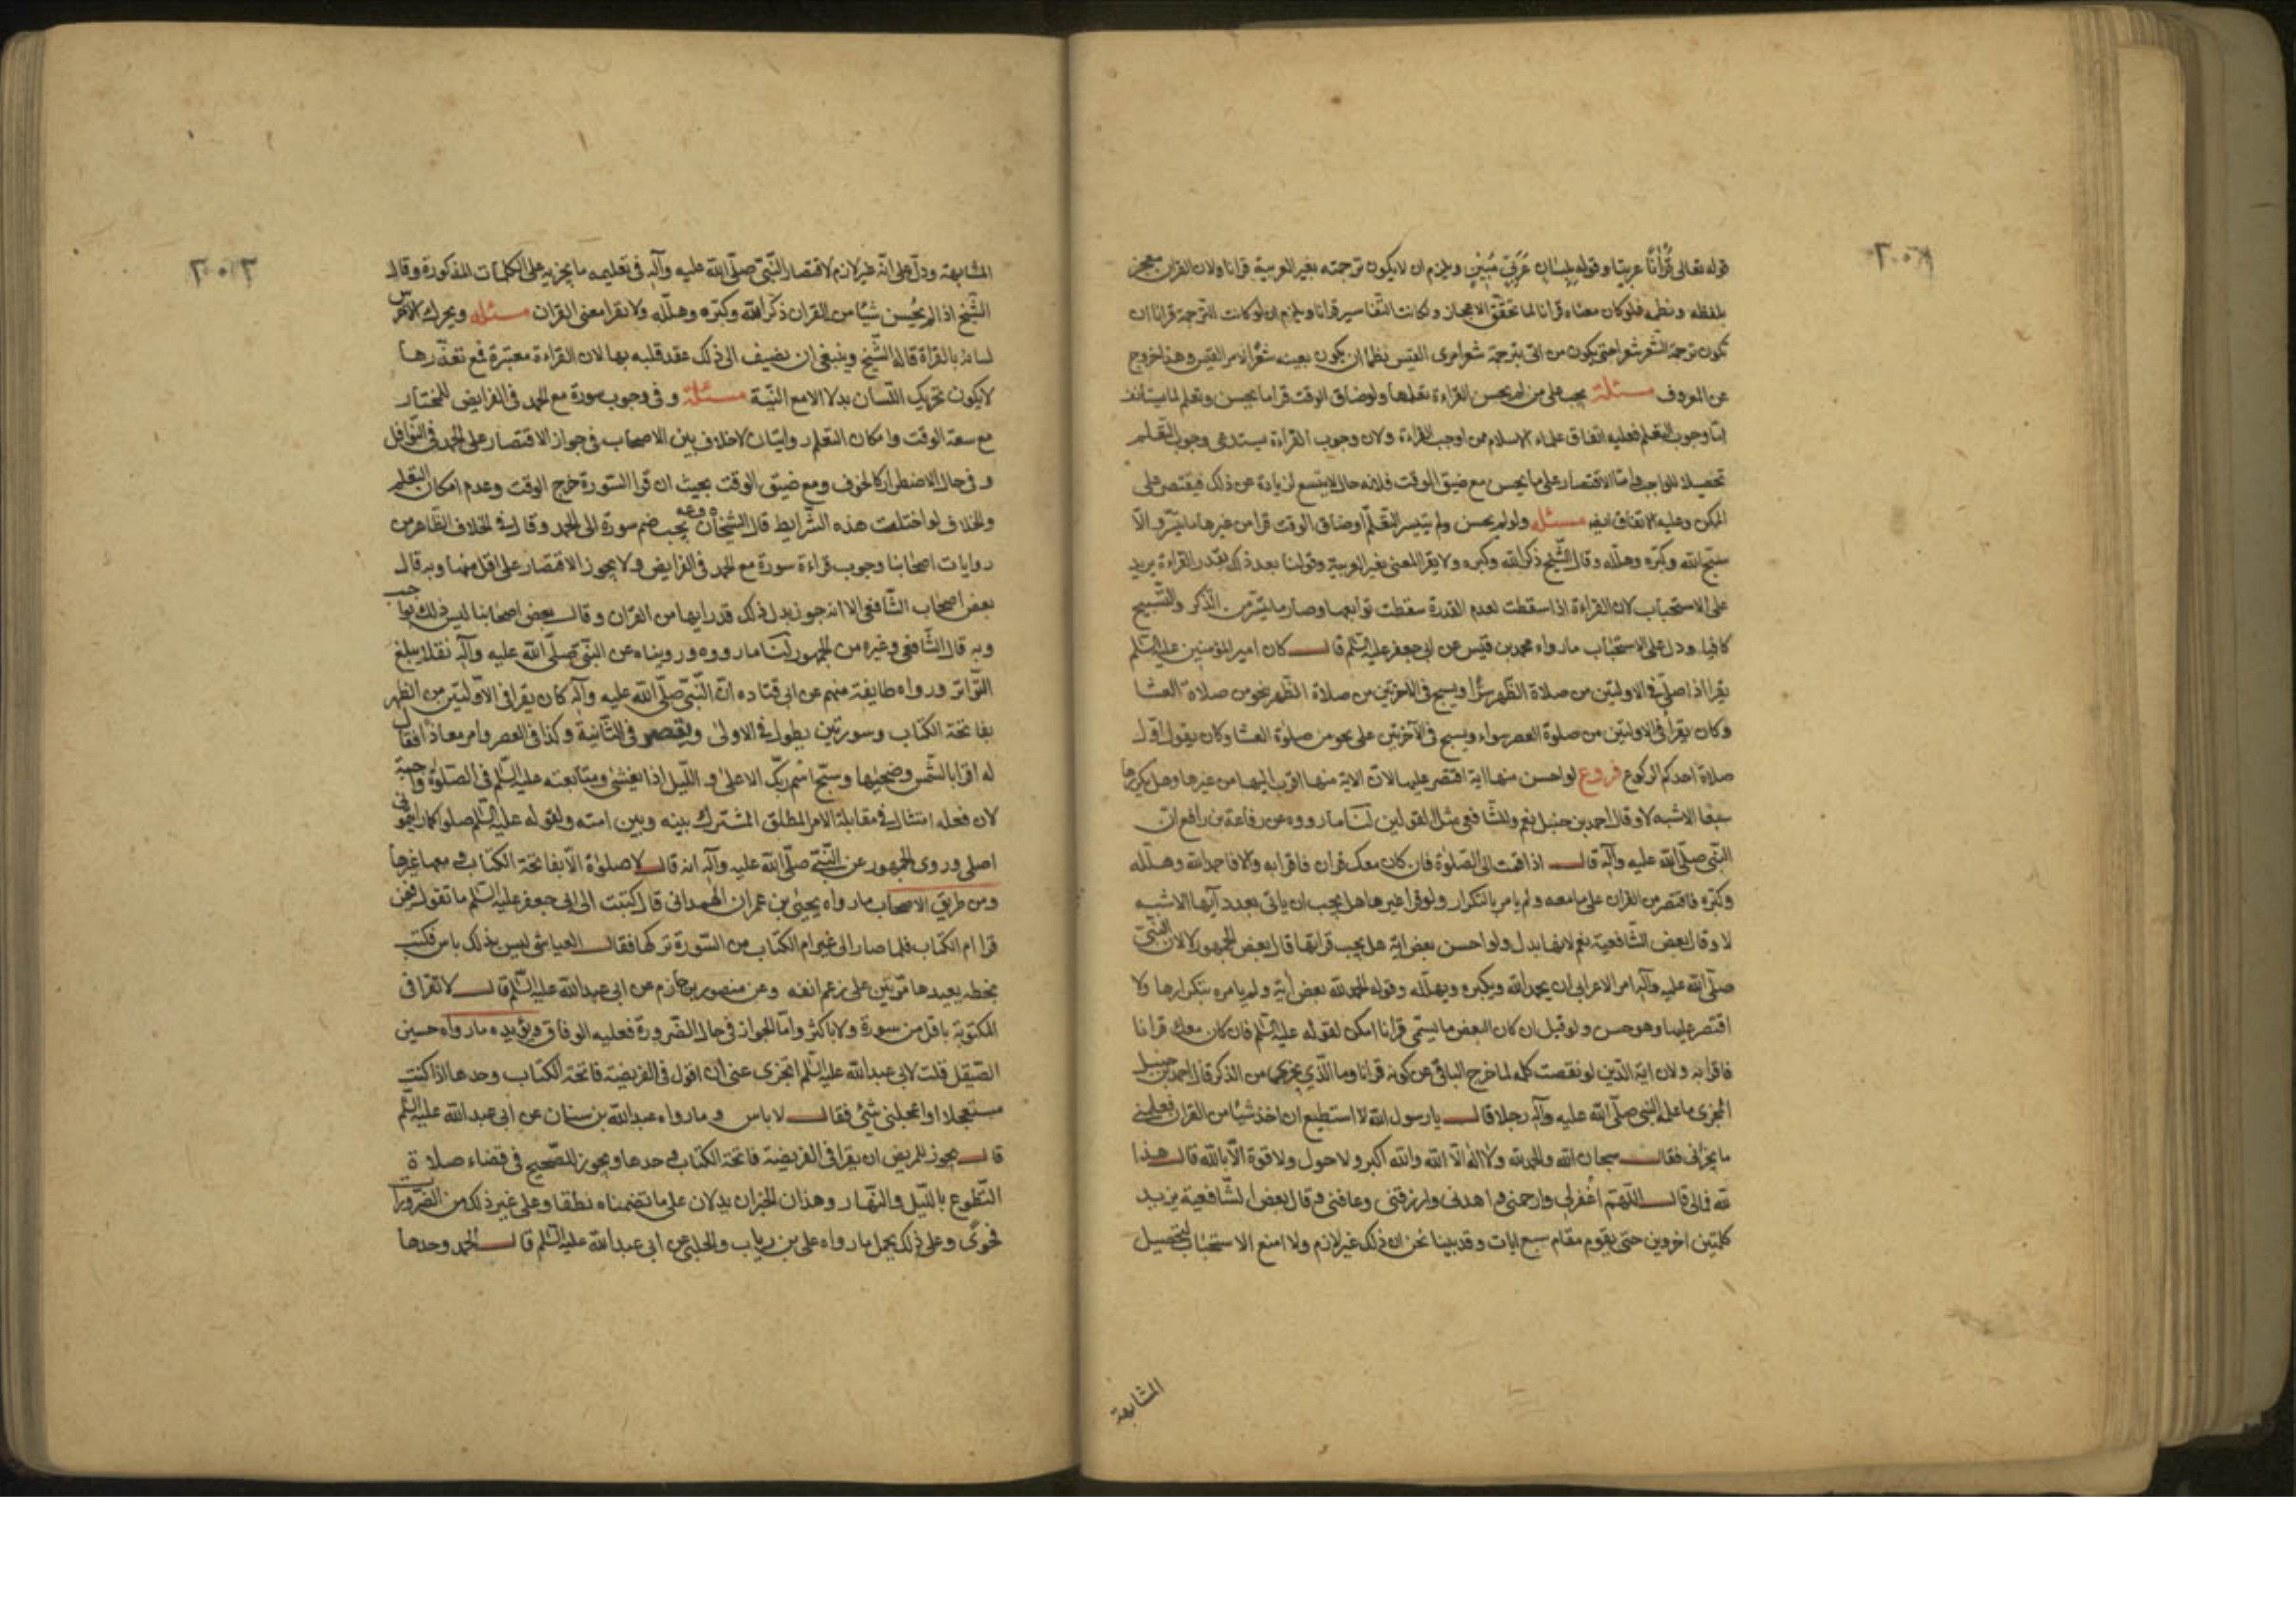 ٢٠٢
قوله تعالى قُرْاٰنًا عربيّا وقوله بِلِسٰانٍ عَرَبِيٍّ مُبِيْنٍ ويلزم ان لايكون ترجمته بغير العربية قرانا ولان القران معجز
بلفظه ونظمه فلو كان معناه قرانا لما تحقّق الاعجاز ولكانت التّفاسير قرانا ويلزم ان لو كانت الترجمة قرانا ان
تكون ترجمة الشّعر شعرا حتى يكون من اتى بترجمة شعر امرئ القيس نظما ان يكون بعينه شعرًا لامرء القيس وهذا خروج
عن المعروف مسئلة يجب على من لم يحسن القراءة تعلمها ولو ضاق الوقت قرا ما يحسن وتعلم لما يستانف
امّا وجوب التعلّم فعليه اتفاق علماء الاسلام ممن اوجب القراءة ولان وجوب القراءة يستدعى وجوب التعلّم
تحصيلا للواجب وامّا الاقتصار على ما يحسن مع ضيق الوقت فلانه حال لايتسع لزيادة عن ذلك فيقتصر على
الممكن وعليه الاتفاق ايضا مسئله ولو لم يحسن ولم يتيسر التّعلّم او ضاق الوقت قرا من غيرها ما تيسّر والّا
سبّح الله وكبّره وهلّله وقال الشّيخ ذكر الله وكبره ولايقرا المعنى بغير العربية وقولنا بعد ذلك بقدر القراءة يريد
على الاستحباب لان القراءة اذا سقطت لعدم القدرة سقطت توابعها وصار ما تيسّر من الذّكر والتّسبيح
كافيا ودل على الاستحباب مارواه محمد بن قيس عن ابى جعفر عليه السّلم قال كان امير المؤمنين عليه السّلم
يقرا اذا صلّى فى الاوليتن من صلاة الظّهر سرًّا ويسبح فى الاخرتين من صلاة الظّهر نحو من صلاة العشا
وكان يقرا فى الاوليتن من صلوة العصر سواء ويسبح فى الآخرتين على نحو من صلوة العشا وكان يقول اوّل
صلاة احدكم الركوع فروع لو احسن منها اية اقتصر عليها لانّ الاية منها اقرب اليها من غيرها وهل يكررها
سبعا الاشبه لا وقال احمد بن حنبل نعم وللشّافعى مثل القولين لنَا ما رووه عن رفاعة بن رافع انّ
النّبى صلّى الله عليه وآله قال اذا قمت الى الصّلوة فان كان معك قران فاقرا به والا فاحمد الله وهلّله
وكبّره فاقتصر من القران على مامعه ولم يامر بالتكرار ولو قرا غيرها هل يجب ان ياتى بعدد آيها الاشبه
لا وقال بعض الشّافعية نعم لانها بدل ولو احسن بعض اية هل يجب قراتها قال بعض الجمهور لا لان النّبىّ
صلّى الله عليه وآله امر الاعرابى ان يحمد الله ويكبره ويهلّله وقوله الحمد لله بعض اية ولم يامره بتكرارها ولا
اقتصر عليها وهو حسن ولو قيل ان كان البعض ما يسمّى قرانا امكن لقوله عليه السّلم فان كان معك قرانا
فاقرا به ولان اية الدّين لو نقصت كله لما خرج الباقى عن كونه قرانا وما الّذى يجزى من الذكر قال احمد بن حنبل
المجزى ما علم النبى صلّى الله عليه وآله رجلا قال يا رسول الله لا استطيع ان اخذ شيئا من القران فعلمنى
ما يجزئنى فقال سبحان الله والحمد لله ولا اله الّا الله والله اكبر ولا حول ولا قوة الّا بالله قال هذا
لله فمالى قال اللّهمّ اغفر لى وارحمنى و اهدنى وارزقنى وعافنى وقال بعض الشّافعية يزيد
كلمتين اخروين حتى يقوم مقام سبع ايات وقد بينا نحن ان ذلك غير لازم ولا امنع الاستحباب لتحصيل
المشابهة
٢٠٣
المشابهة ودلّ على انّه غير لازم لاقتصار النّبىّ صلّى الله عليه وآله فى تعليمه ما يجزيه على الكلمات المذكورة وقال
الشّيخ اذا لم يُحسن شيئا من القران ذكر الله وكبّره وهلّله ولا يقرا معنى القران مسئله ويحرك الاخرس
لسانه بالقراة قاله الشّيخ وينبغى ان يضيف الى ذلك عقد قلبه بها لان القراءة معتبرة فمع تعذّرها
لايكون تحريك اللّسان بدلا الا مع النّيّة مسئلة و فى وجوب سورة مع الحمد فى الفرايض للمختار
مع سعة الوقت وامكان التعلم روايتان لاخلاف بين الاصحاب فى جواز الاقتصار على الحمد فى النّوافل
و فى حال الاضطرار كالخوف ومع ضيق الوقت بحيث ان قرا السّورة خرج الوقت وعدم امكان التعلم
والخلاف لو اختلفت هذه الشّرايط قال الشيخان وعه يجب ضم سورة الى الحمد وقال فى الخلاف الظّاهر من
روايات اصحابنا وجوب قراءة سورة مع الحمد فى الفرايض ولا يجوز الاقتصار على اقل منها وبه قال
بعض اصحاب الشّافعى الا انه جوز بدل ذلك قدر ايها من القران وقال بعض اصحابنا ليس ذلك بواجب
وبه قال الشّافعى وغيره من الجمهور لنَا ما رووه ورويناه عن النبّى صلّى الله عليه وآله نقلا يبلغ
التّواتر ورواه طايفة منهم عن ابى قتاده انّ النّبىّ صلّى الله عليه وآله كان يقرا فى الاوّليتن من الظهر
بفاتحة الكتاب وسورتين يطول فى الاولىٰ ويقصر فى الثّانية وكذا فى العصر وامر معاذا فقال
له اقرا بالشّمس وضحيٰها وسبّح اسم ربّك الاعلى و اللّيل اذا يغشىٰ ومتابعته عليه السّلم فى الصّلوة واجبة
لان فعله امتثال فى مقابلة الامر المطلق المشترك بينه وبين امته ولقوله عليه السّلم صلوا كما رايتمونى
اصلى وروى الجمهور عن النّبىّ صلّى الله عليه وآله انه قال لا صلوٰة الّا بفاتحة الكتاب و معها غيرها
ومن طريق الاصحاب ما رواه يحيىٰ بن عمران الهمدانى قال كتبت الى ابى جعفر عليه السّلم ما تقول فيمن
قرا ام الكتاب فلما صار الى غير ام الكتاب من السّورة تركها فقال العياشى ليس بذلك باس فكتب
بخطه يعيدها مرّتين على رغم انفه وعن منصور بن حازم عن ابى عبد الله عليه السّلم قال لا تقرا فى
المكتوبة باقل من سورة ولا باكثر وامّا الجواز فى حال الضّرورة فعليه الوفاق ويؤيده مارواه حسين
الصّيقل قلت لابى عبد الله عليه السّلم ايجزى عنى ان اقول فى الفريضة فاتحة الكتاب وحدها اذا كنت
مستعجلا او اعجلنى شئ فقال لا باس و مارواه عبد الله بن سنان عن ابى عبد الله عليه السّلم
قال يجوز للمريض ان يقرا فى الفريضة فاتحة الكتاب وحدها ويجوز للصّحيح فى قضاء صلاة
التّطوع باللّيل والنّهار وهذان الخبران يدلان على ما تضمناه نطقا وعلى غير ذلك من الضّرورات
فحوًى وعلى ذلك يحمل مارواه على بن رياب والحلبى عن ابى عبد الله عليه السّلم قال الحمد وحدها